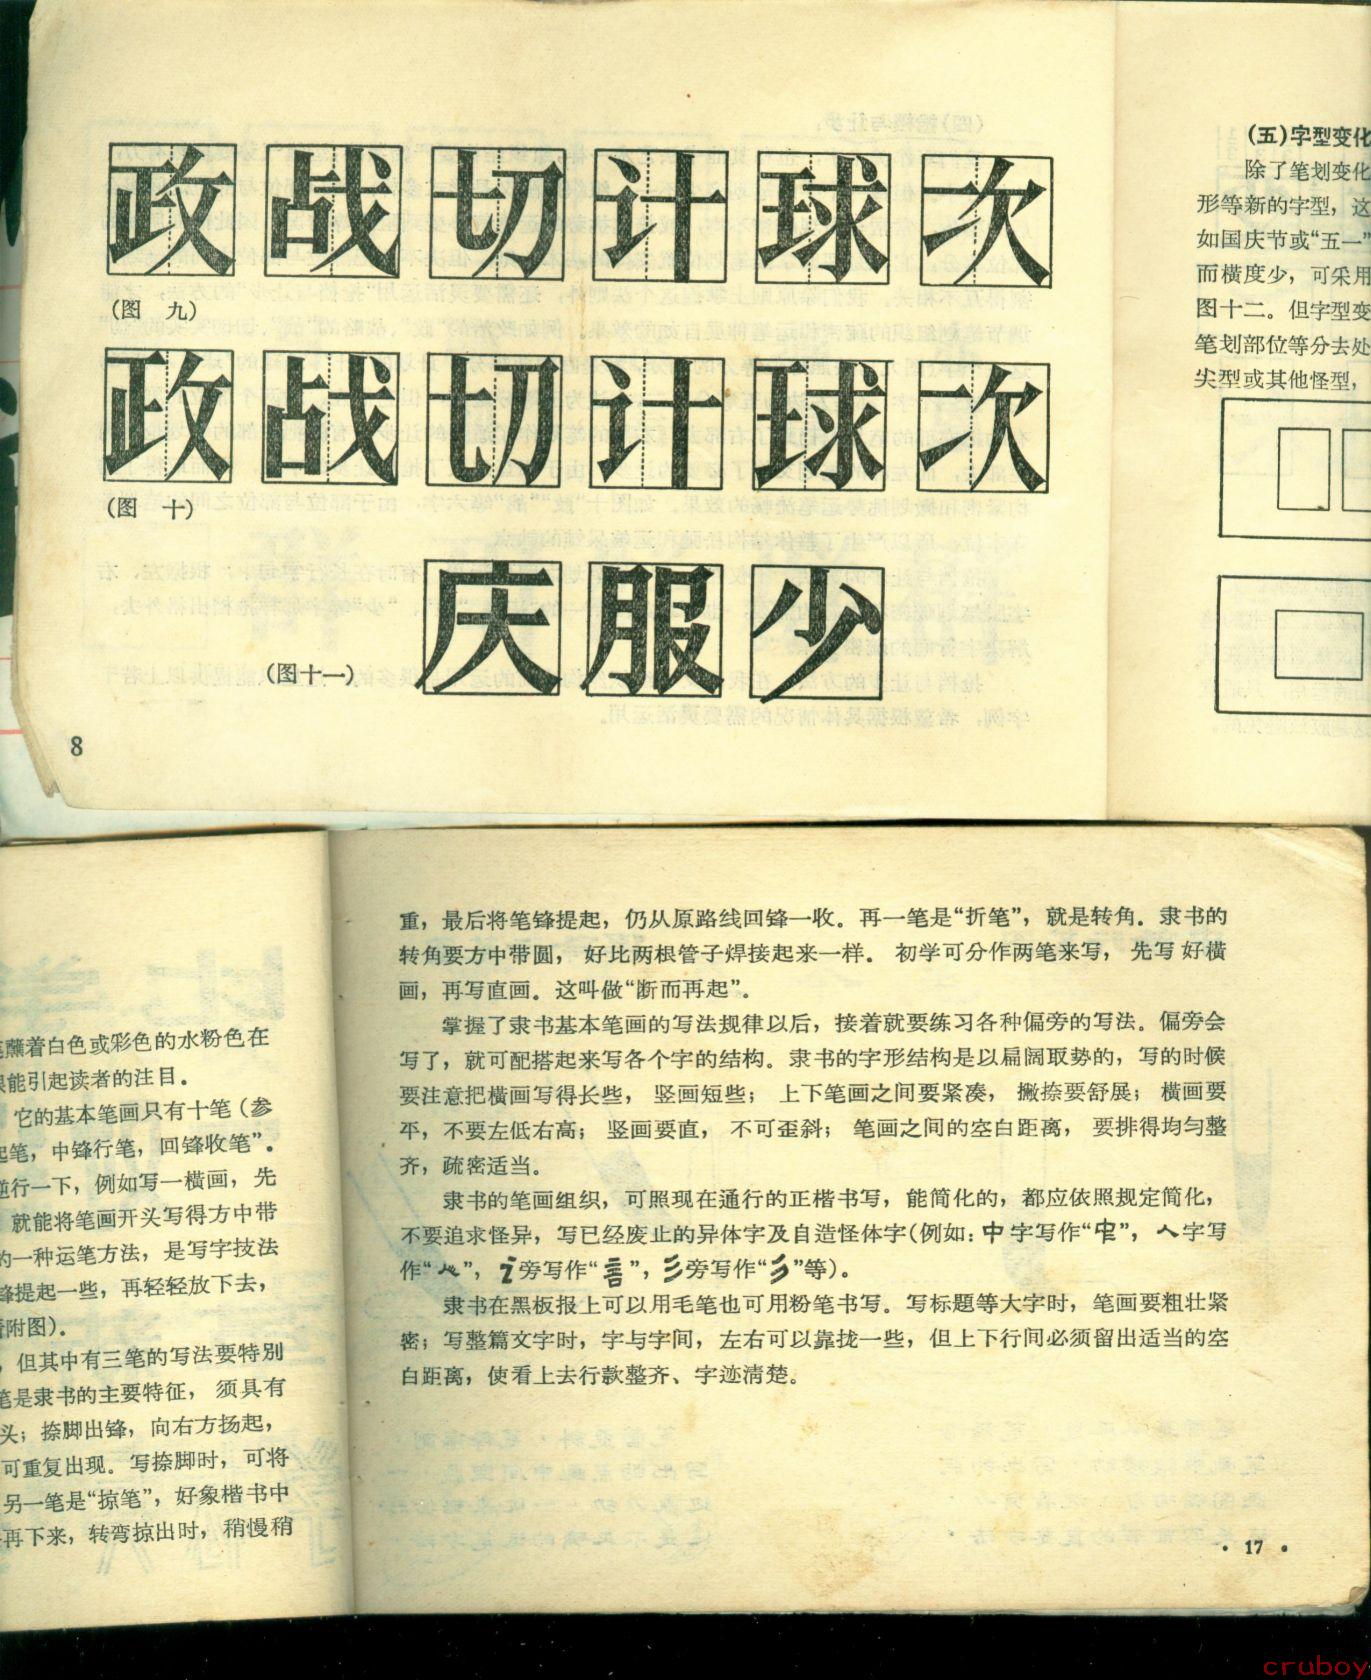 政战切计球次
(图 九)
政战切计球次
(图 十)
庆服少
(图十一)
8
(五)字型变化
除了笔划变化
形等新的字型，这
如国庆节或“五一”
而横度少，可采用
图十二。但字型变
笔划部位等分去处
尖型或其他怪型，
蘸着白色或彩色的水粉色在
能引起读者的注目。
它的基本笔画只有十笔(参
起笔，中锋行笔，回锋收笔”。
逆行一下，例如写一横画，先
就能将笔画开头写得方中带
的一种运笔方法，是写字技法
锋提起一些，再轻轻放下去，
附图)。
，但其中有三笔的写法要特别
笔是隶书的主要特征，须具有
头；捺脚出锋，向右方扬起，
可重复出现。写捺脚时，可将
另一笔是“掠笔”，好象楷书中
再下来，转弯掠出时，稍慢稍
重，最后将笔锋提起，仍从原路线回锋一收。再一笔是“折笔”，就是转角。隶书的
转角要方中带圆，好比两根管子焊接起来一样。初学可分作两笔来写，先写好横
画，再写直画。这叫做“断而再起”。
掌握了隶书基本笔画的写法规律以后，接着就要练习各种偏旁的写法。偏旁会
写了，就可配搭起来写各个字的结构。隶书的字形结构是以扁阔取势的，写的时候
要注意把横画写得长些，竖画短些；上下笔画之间要紧凑，撇捺要舒展；横画要
平，不要左低右高；竖画要直，不可歪斜；笔画之间的空白距离，要排得均匀整
齐，疏密适当。
隶书的笔画组织，可照现在通行的正楷书写，能简化的，都应依照规定简化，
不要追求怪异，写已经废止的异体字及自造怪体字(例如：中字写作“”，人字写
作“”，讠旁写作“言”，彡旁写作“”等)。
隶书在黑板报上可以用毛笔也可用粉笔书写。写标题等大字时，笔画要粗壮紧
密；写整篇文字时，字与字间，左右可以靠拢一些，但上下行间必须留出适当的空
白距离，使看上去行款整齐、字迹清楚。
• 17 •
cruboy